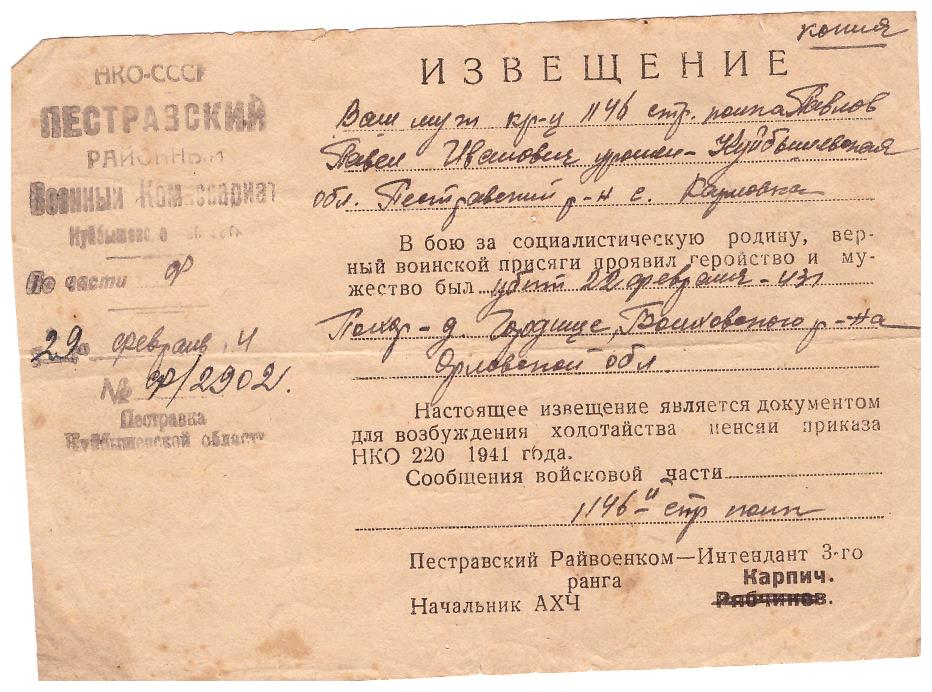 копия
НКО-СССР
ПЕСТРАВСКИЙ
РАЙОННЫЙ
Военный Комиссариат
По части Ф
29 февраля
№ Ф/2902.
Пестравка
Куйбышевской области
ИЗВЕЩЕНИЕ
Ваш муж кр-ц 1146 стр. полка Павлов
Павел Иванович урожен- Куйбышевская
обл. Пестравский р-н с. Карловка
В бою за социалистическую родину, вер-
ный воинской присяги проявил геройство и му-
жество был убит 22 февраля
Похор- д. Городище, р-на
Орловской обл.
Настоящее извещение является документом
для возбуждения холотайства пенсяи приказа
НКО 220 1941 года.
Сообщения войсковой части
1146 стр полк
Пестравский Райвоенком—Интендант 3-го
ранга Карпич.
Начальник АХЧ Рябчинов.